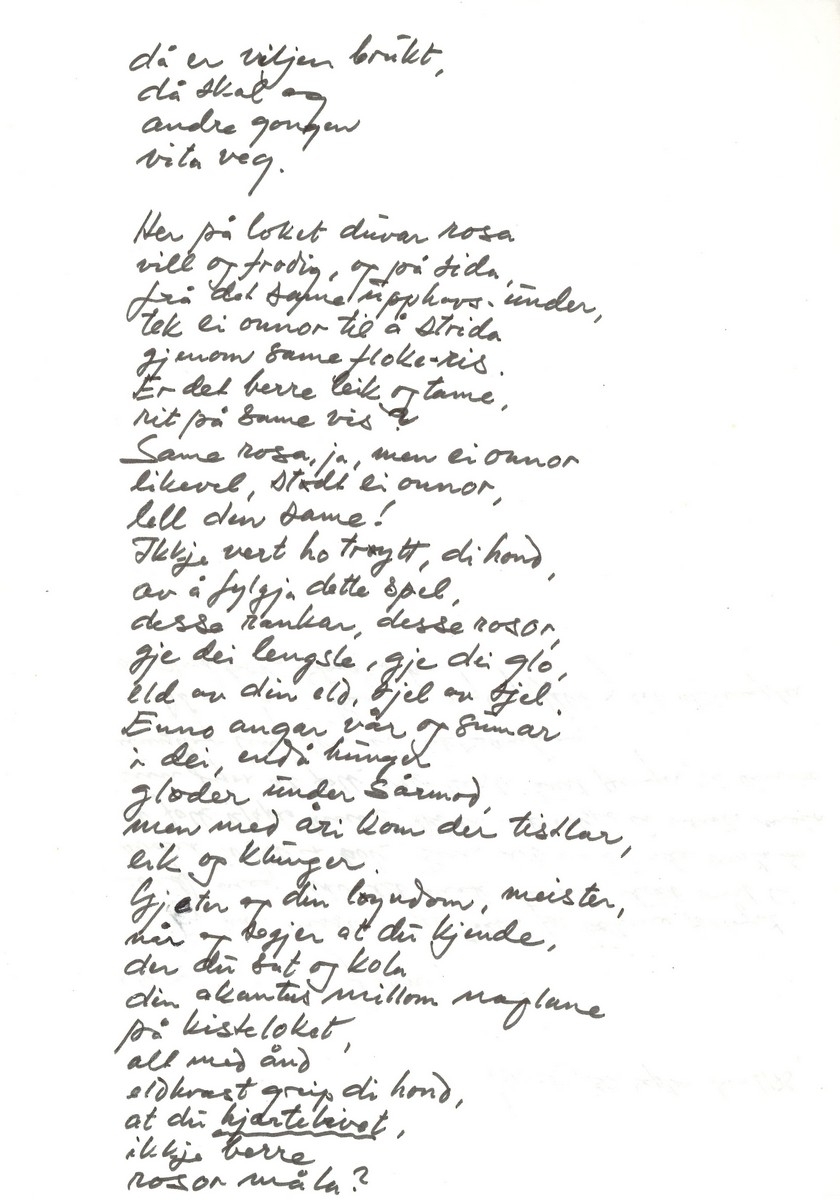 då er viljen brukt,
då skal eg
andre gongen
vita veg.
Her på loket duvar rosa
vill og frodig, og på sida,
frå det same upphavs-under,
tek ei onnor til å strida
gjenom same floke-ris.
Er det berre leik og tame,
rit på same vis?
Same rosa, ja, men ei onnor
likevel, stødt ei onnor,
lell den same!
Ikkje vert ho trøytt, di hond,
av å fylgja dette spel,
desse rankar, desse rosor,
gje dei lengsle, gje dei glo,
eld av din eld, sjel av sjel.
Enno angar vår og sumar
i dei, endå hunger
gløder under sårmod,
men med åri kom der tistlar,
eik og klunger.
Gjetter eg din løyndom, meister,
når eg segjer at du kjende,
der du sat og kola
din akantus millom naglane
på kisteloket,
alt med ånd
eldkvast greip di hond,
at du hjartelivet,
ikkje berre
rosor måla?